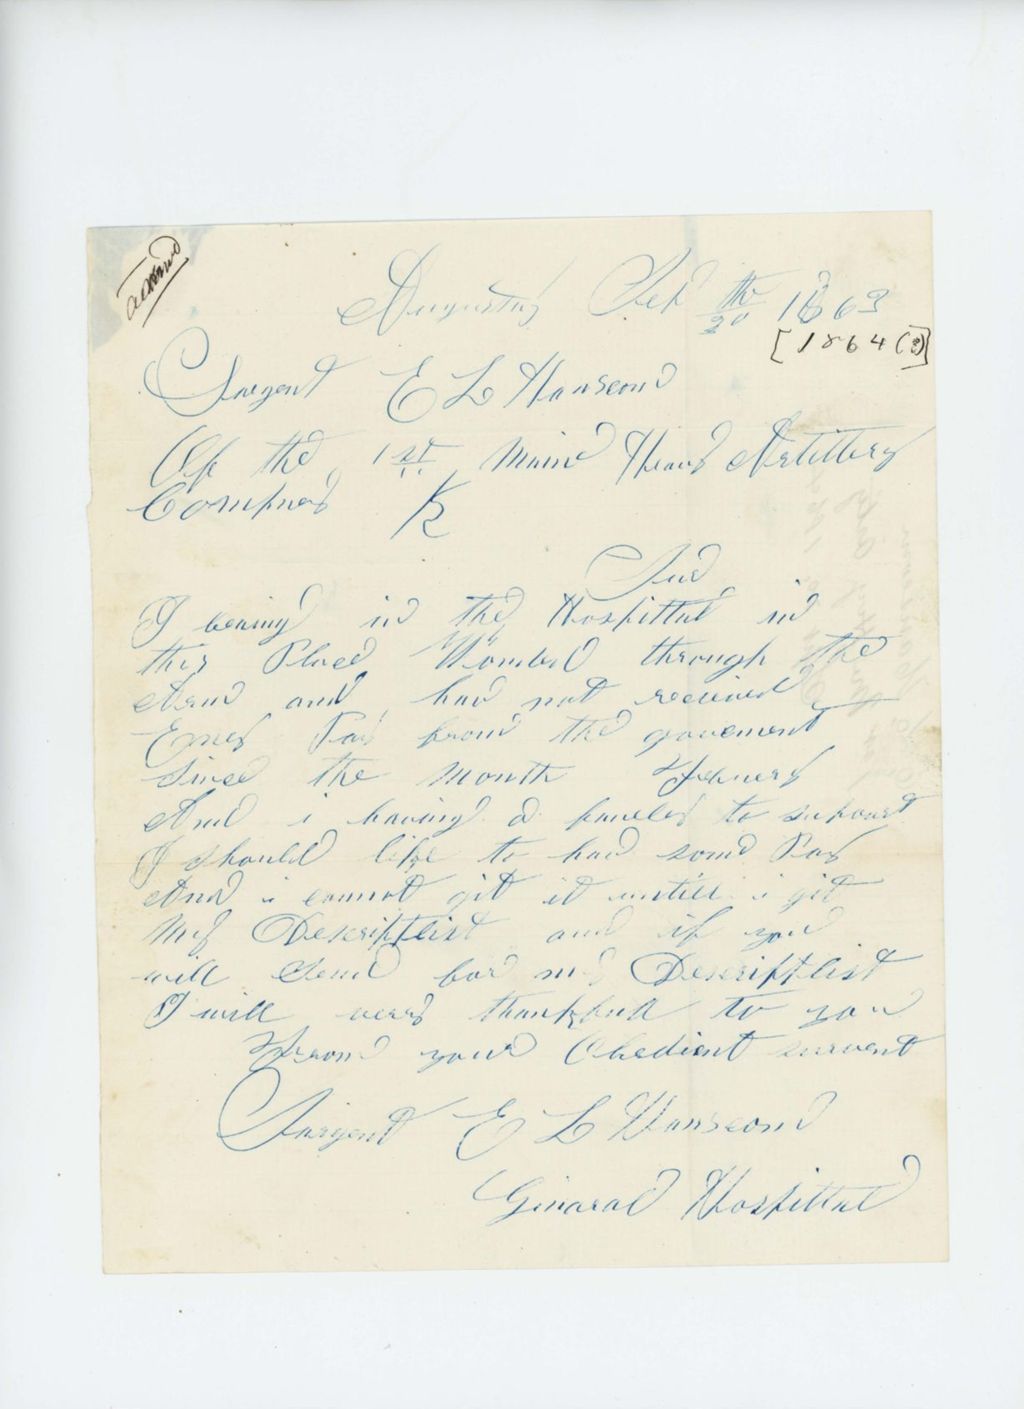 answrd
Augusta, Sep 20th 1863
[1864(?)]
Sargent E L Hanscom
Of the 1st Main Heavy Artillery
Company K
Sur
I beaing in the Hospittal in
this Place Wounded through the
Arm and hav not received
Eney Pay from the goverment
Since the Month Febuery
And i having a fameley to suport
I should like to hav some Pay
And i cannot git it untill i git
My Descriptlist and if you
will Send for my Descriptlist
I will verry thankfull to you
From your Obedient survent
Sargent E L Hanscom
Ginaral Hospittal